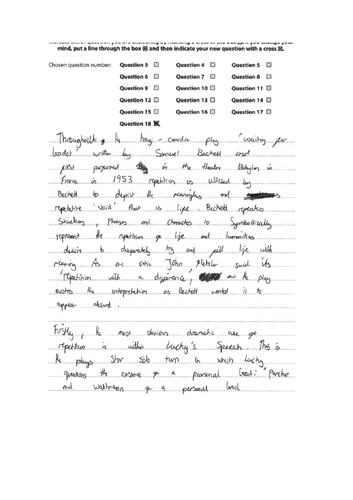 mind, put a line through the box and then indicate your new question with a cross
Chosen question number: Question 3 Question 4 Question 5
Question 6 Question 7 Question 8
Question 9 Question 10 Question 11
Question 12 Question 13 Question 14
Question 15 Question 16 Question 17
Question 18
Throughout the tragi-comedic play 'waiting for
Godot' written by Samuel Beckett and
first performed in the theatre Babylon in
France in 1953 repetition is utilised by
Beckett to depict the meaningless and
repetitive 'void' that us life. Beckett repeates
Situations, Phrases and characters to Symbolically
represent the repetition of life and humanities
desire to desperately try and fill life with
meaning. As one critic John said its
'repetition with a difference', and the play
evokes the interpretation as Beckett wanted it to
appear absurd.
Firstly, the most obvious dramatic use of
repetition is within Lucky's Speech. This is
the plays Star Solo turn in which Lucky
questions the existence of a personal God: 'Puncher
and Wattmann of a personal God